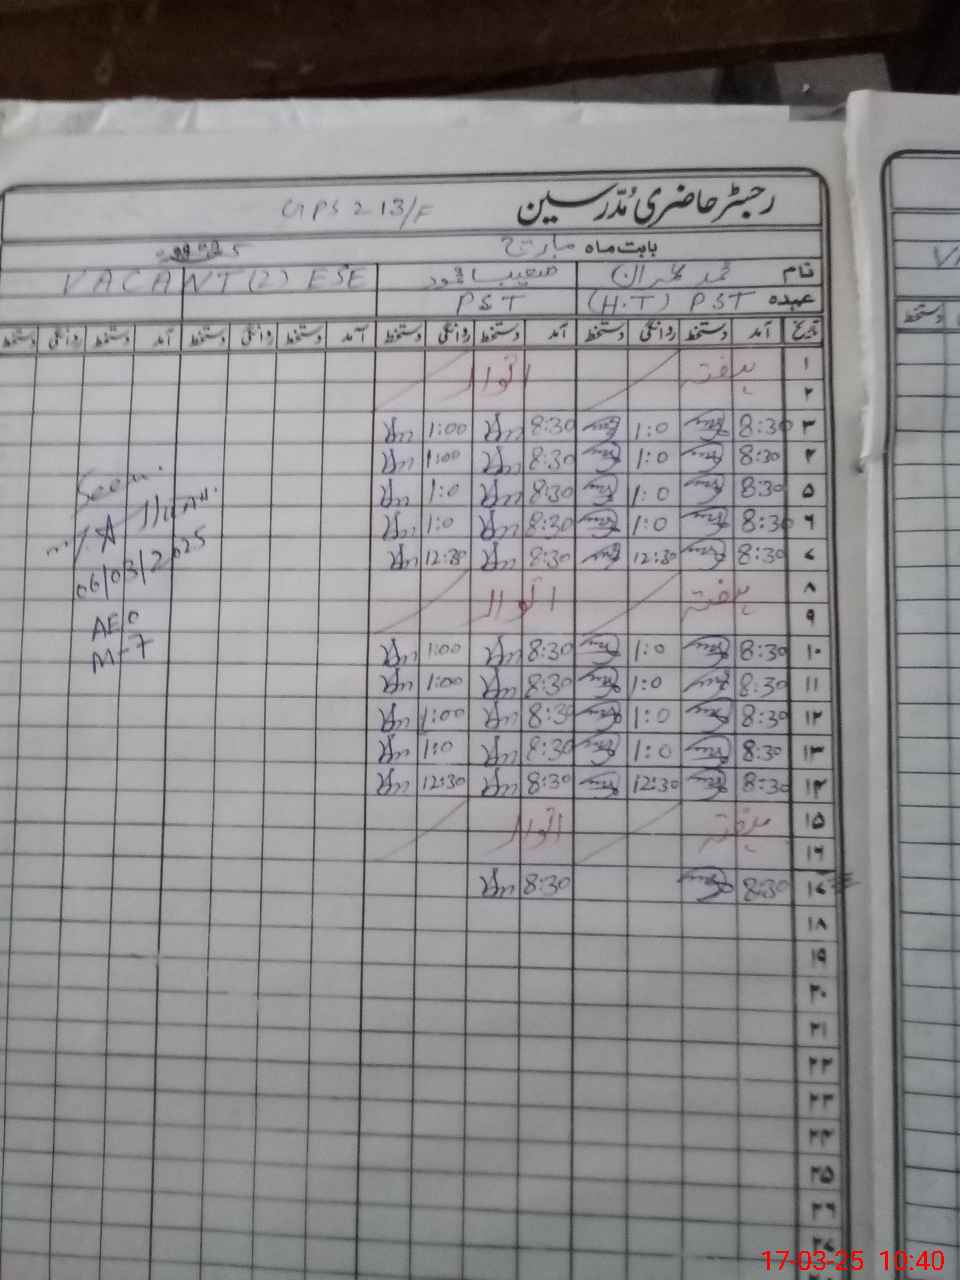 رجسٹر حاضری مدرسین GPS 213/F
بابت ماہ مارچ
نام محمد عمران VACANT (2) ESE
عہدہ PST (H.T) PST
تاریخ آمد دستخط روانگی دستخط آمد دستخط روانگی دستخط آمد دستخط روانگی دستخط آمد دستخط روانگی دستخط
۱ ہفتہ اتوار
۲
۳ 8:30 1:0 8:30 1:00
۴ 8:30 1:0 8:30 1:00
۵ 8:30 1:0 8:30 1:0
۶ 8:30 1:0 8:30 1:0
۷ 8:30 12:30 8:30 12:30
۸ ہفتہ اتوار
۹
۱۰ 8:30 1:0 8:30 1:00
۱۱ 8:30 1:0 8:30 1:00
۱۲ 8:30 1:0 8:30 1:00
۱۳ 8:30 1:0 8:30 1:0
۱۴ 8:30 12:30 8:30 12:30
۱۵ ہفتہ اتوار
۱۶
۱۷ 8:30 8:30
۱۸
۱۹
۲۰
۲۱
۲۲
۲۳
۲۴
۲۵
۲۶
۲۷
Seen
06/03/2025
AEO
M-7
دستخط
17-03-25 10:40